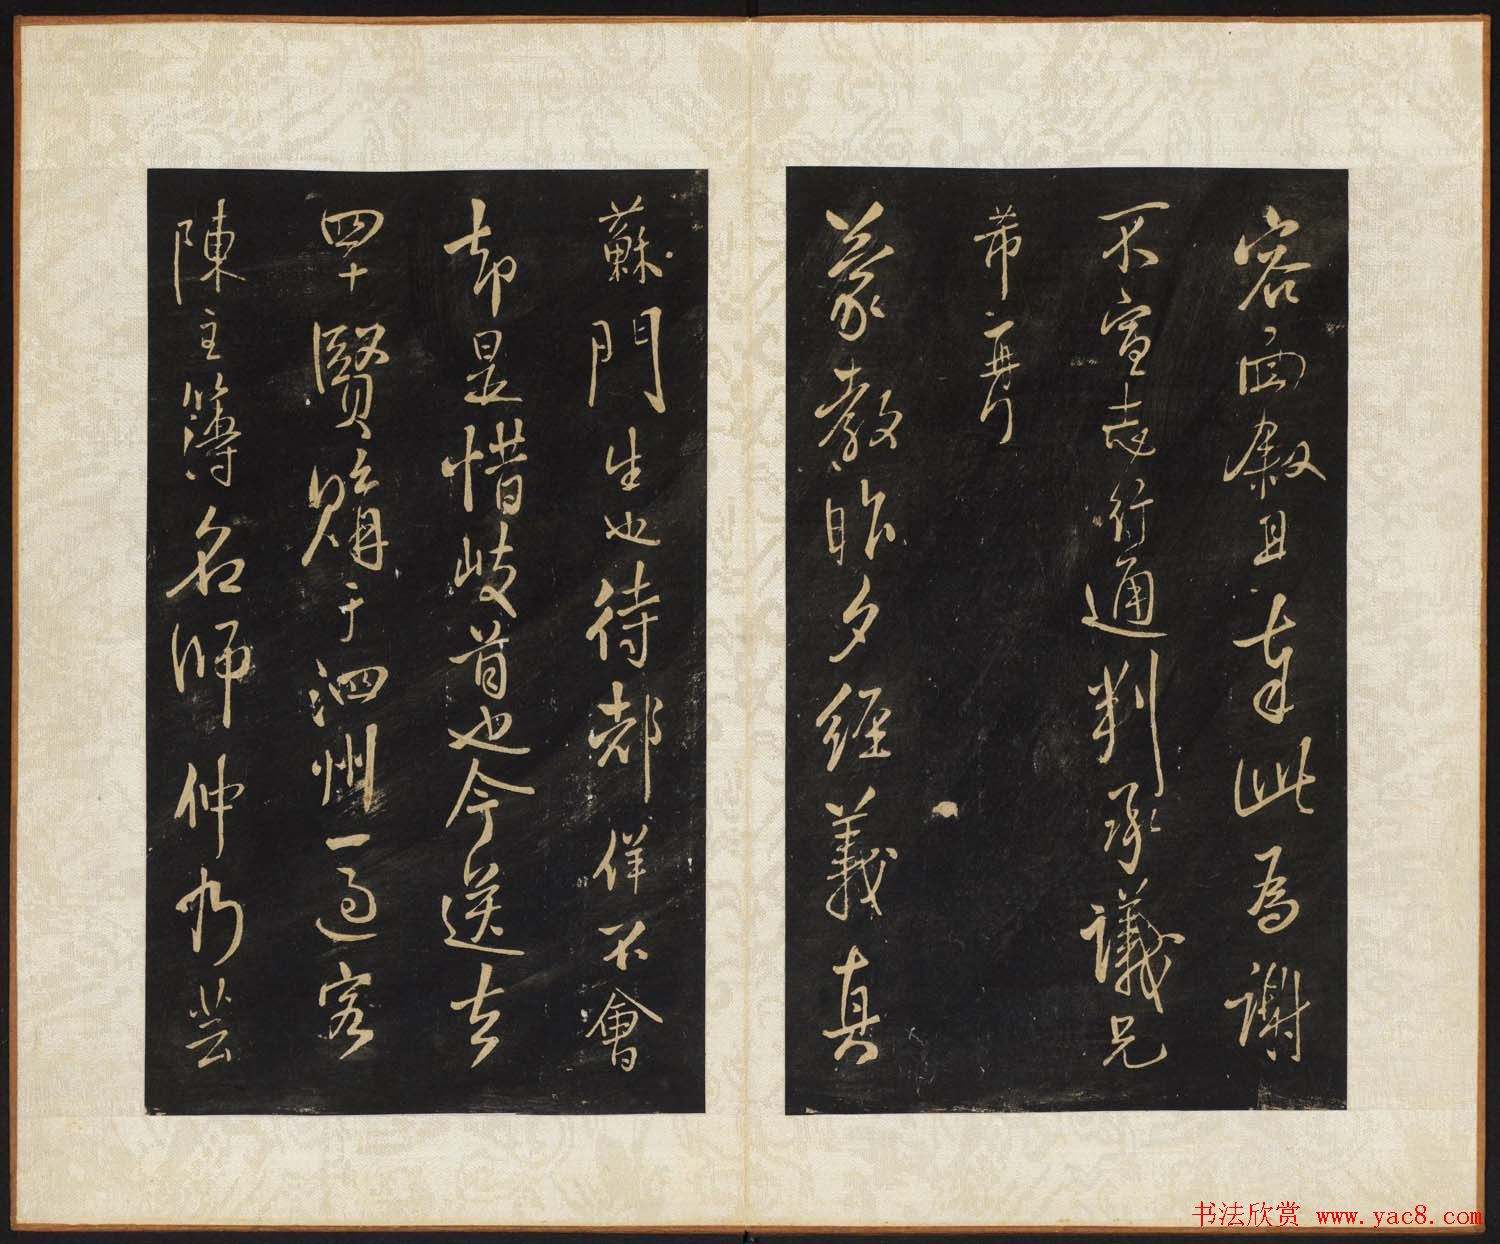 容面叙且奉此为謝
不宣志行通判承議兄
芾再行
蒙教昨夕經義真
蘇門生也待都佯不會
却是惜歧首也今送去
四十賢贖于泗州一過客
陳主簿名師仲乃芸
书法欣赏 www.yac8.com